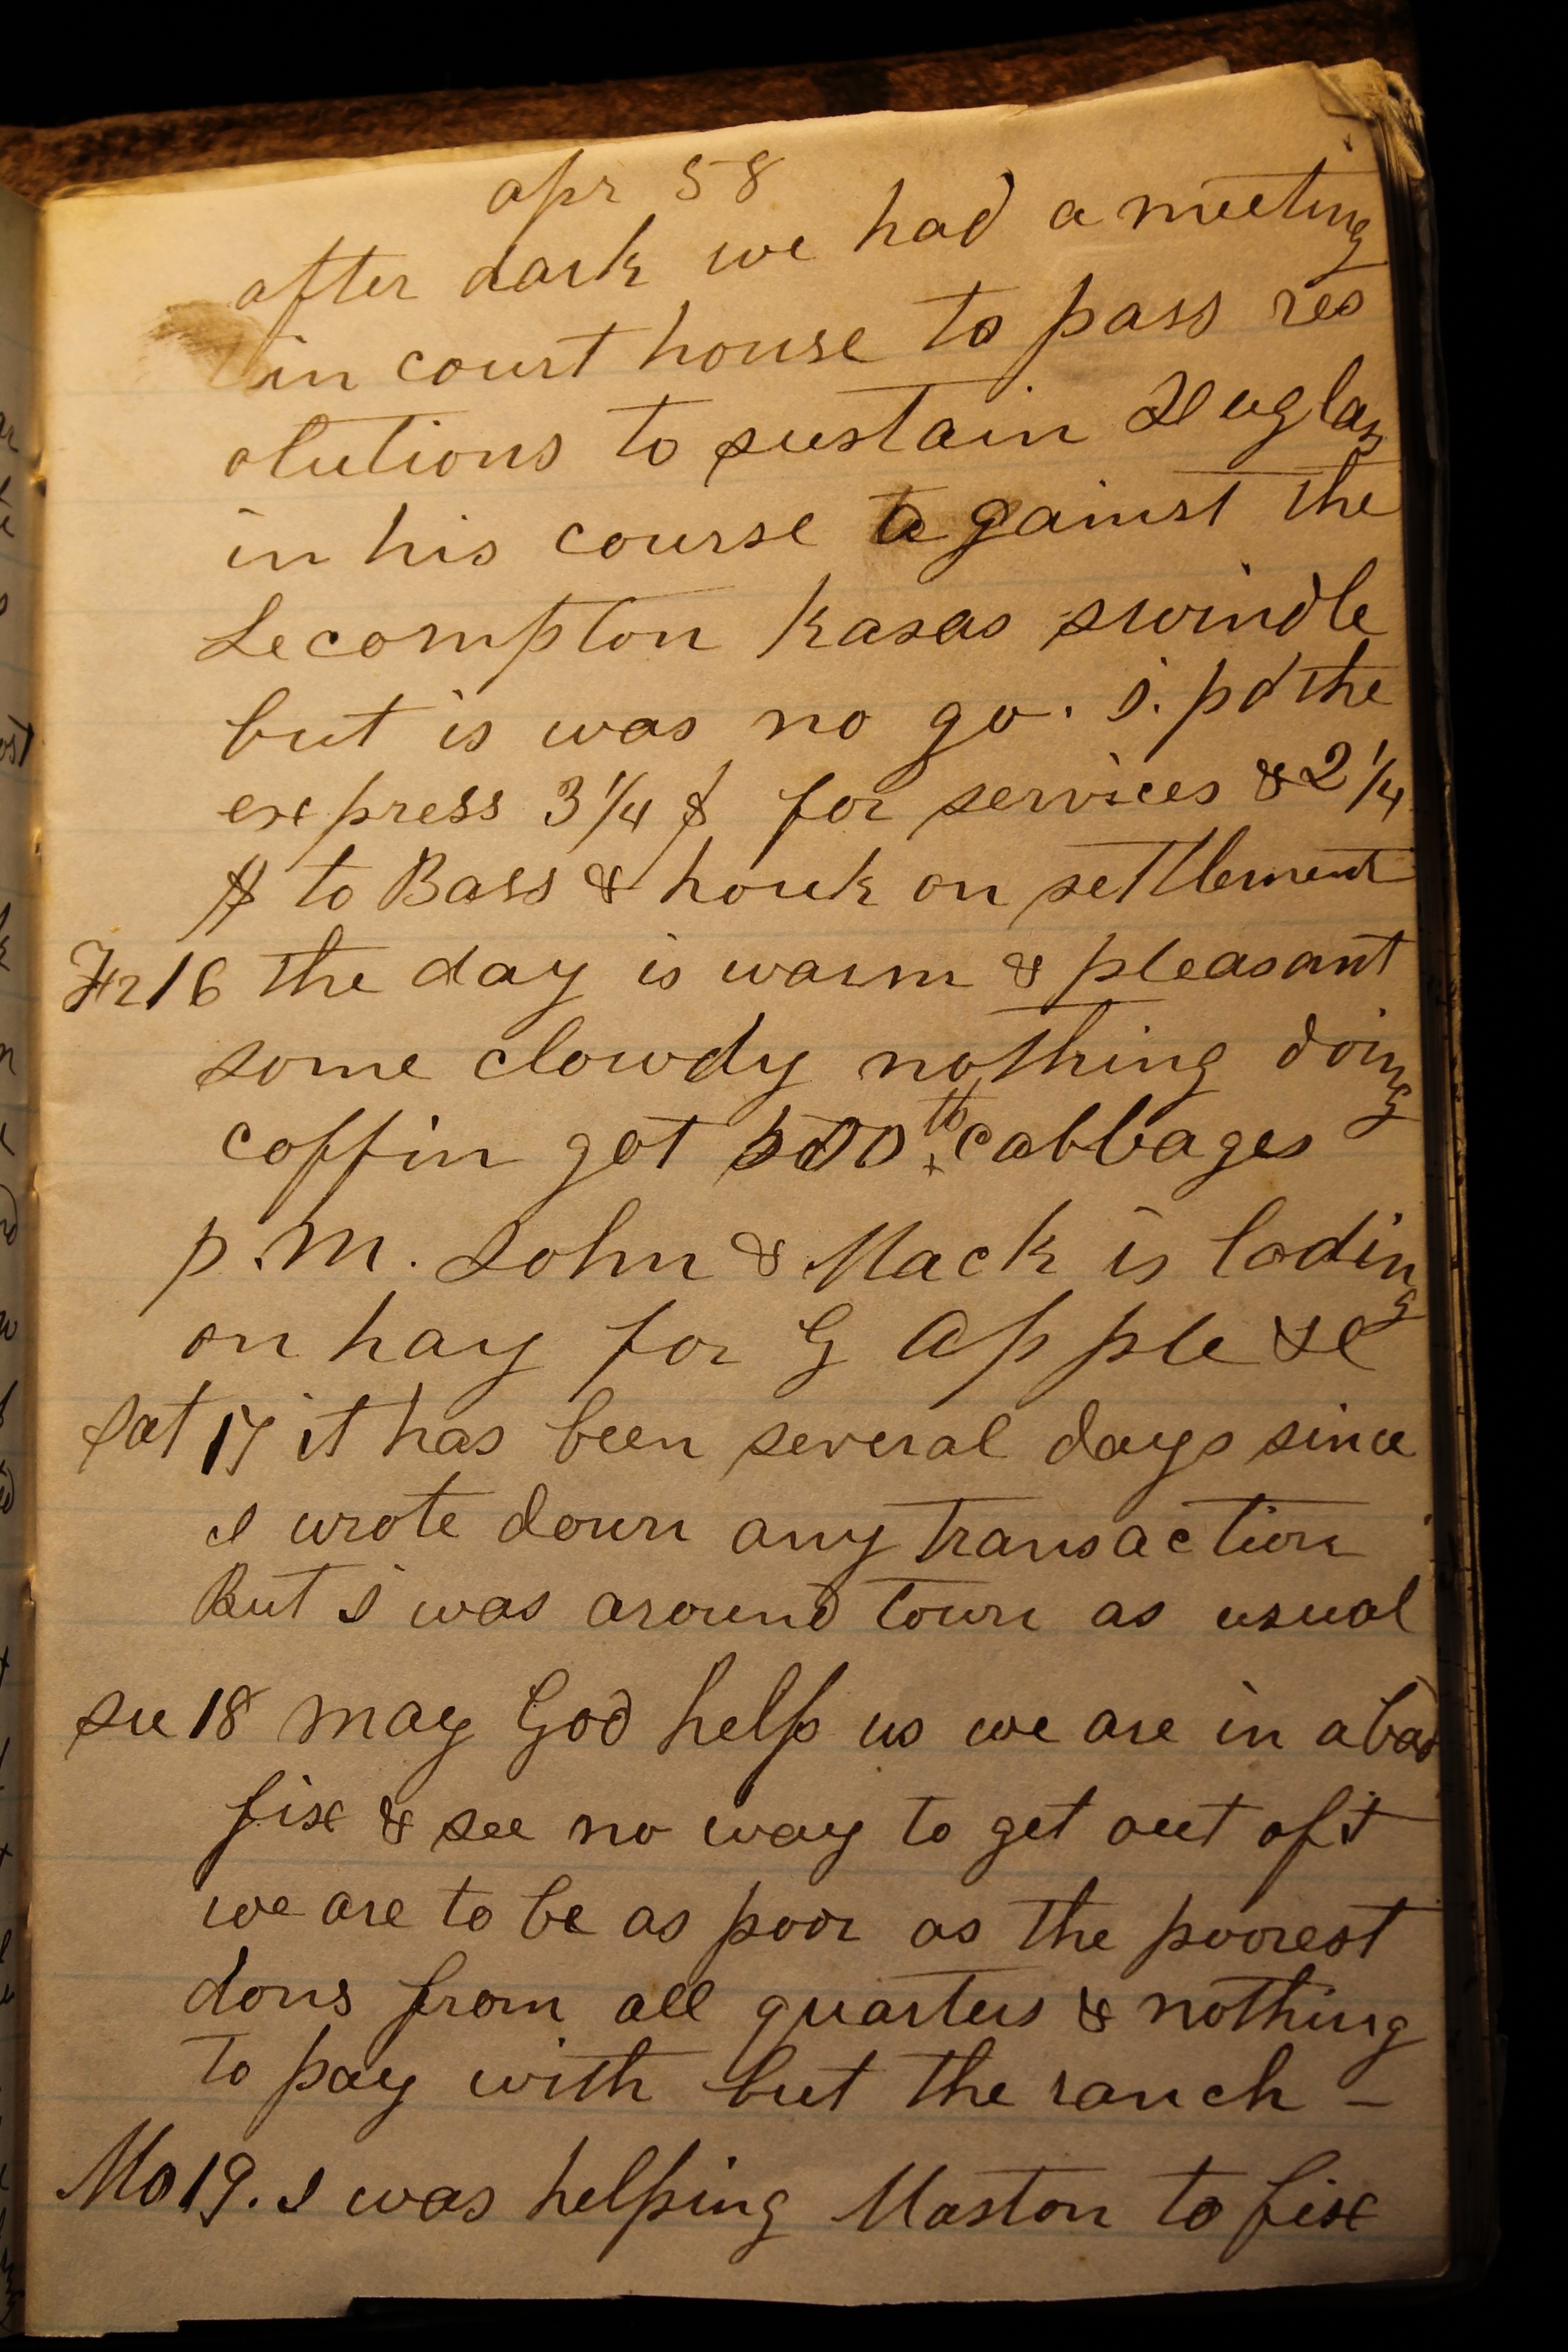 apr 58
after dark we had a meeting
in court house to pass res
olutions to sustain Duglas
in his course against the
Lecompton kasas swindle
but is was no go. i. pd the
express 3 1/4 $ for services & 2 1/4
$ to Bass & houk on settlement
Fr 16 the day is warm & pleasant
some clowdy nothing doing
coffin got 500 lb cabbages
p.m. John & Mack is lading
on hay for G Apple se
Sat 17 it has been several days since
I wrote down any transaction
But i was around town as usual
su 18 may God help us we are in a bad
fix & see no way to get out of it
we are to be as poor as the poorest
dons from all quarters & nothing
to pay with but the ranch –
Mo 19. I was helping Maston to fix